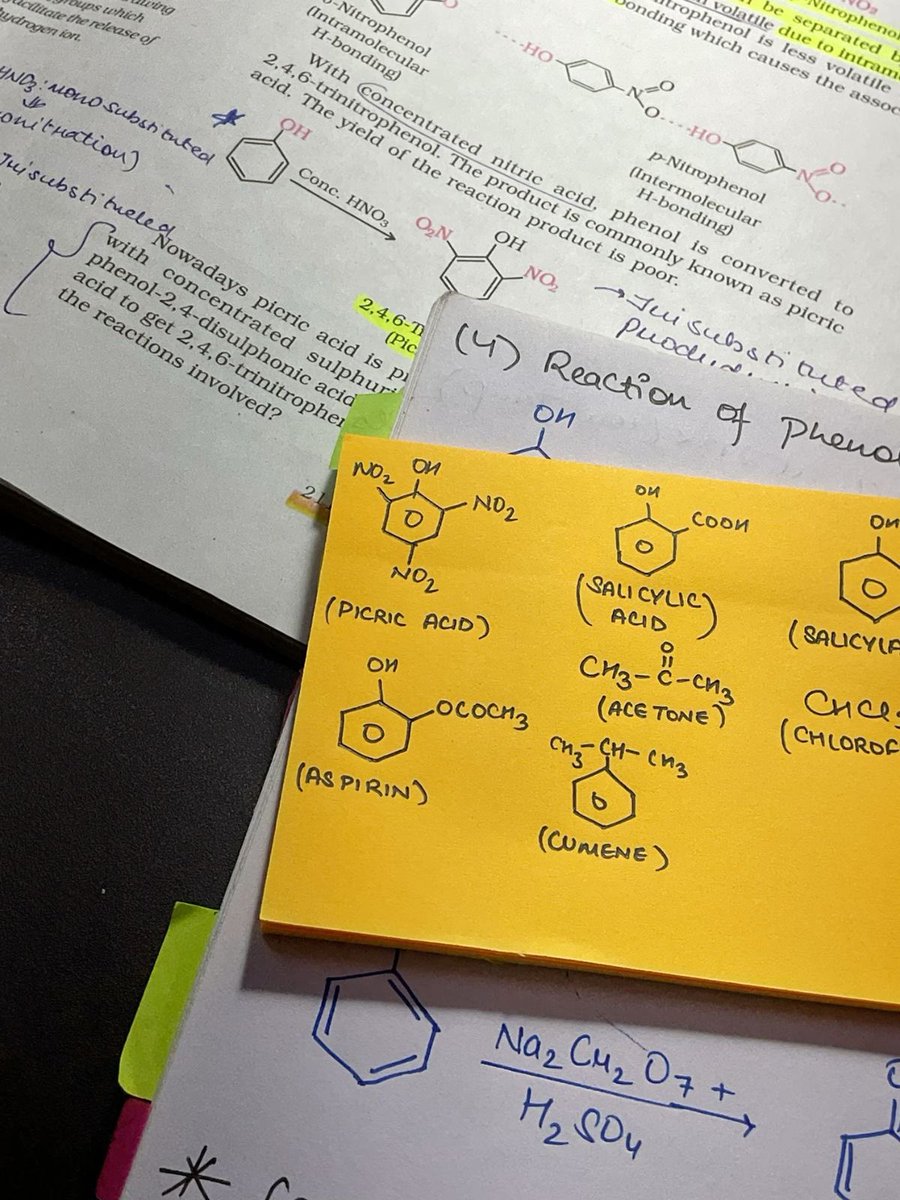 groups which
facilitate the release of
hydrogen ion.
HNO₃: mono substituted
o-Nitrophenol
(Intramolecular
H-bonding)
Nitrophenol
be separated b
volatile due to intram
nitrophenol is less volatile
bonding which causes the assoc
HO
N
O
O
HO
N
O
O
p-Nitrophenol
(Intermolecular
H-bonding)
With concentrated nitric acid, phenol is converted to
2,4,6-trinitrophenol. The product is commonly known as picric
acid. The yield of the reaction product is poor.
OH
Conc. HNO₃
O₂N
OH
NO₂
2,4,6-T
(Pic
→ Trisubstituted
Nowadays picric acid is p
with concentrated sulphuri
phenol-2,4-disulphonic acid
acid to get 2,4,6-trinitrophen
the reactions involved?
(4) Reaction of Pheno
OH
NO₂ OH
NO₂
NO₂
(PICRIC ACID)
OH
COOH
(SALICYLIC
ACID)
OH
(SALICYLA
OH
OCOCH₃
(ASPIRIN)
O
CH₃-C-CH₃
(ACETONE)
CHCl
(CHLOROF
CH₃-CH-CH₃
(CUMENE)
Na₂Cr₂O₇ +
H₂SO₄